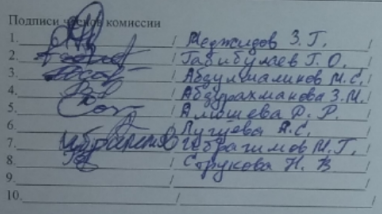 Подписи членов комиссии
1. / Меджидов З. Г.
2. / Габибулаев Г. О.
3. / Абдулмаликов М. С.
4. / Абдурахманова З. М.
5. / Алишева Р. Р.
6. / Лугуева А. С.
7. / Ибрагимов М. Г.
8. / Струкова Н. В
9. /
10. /